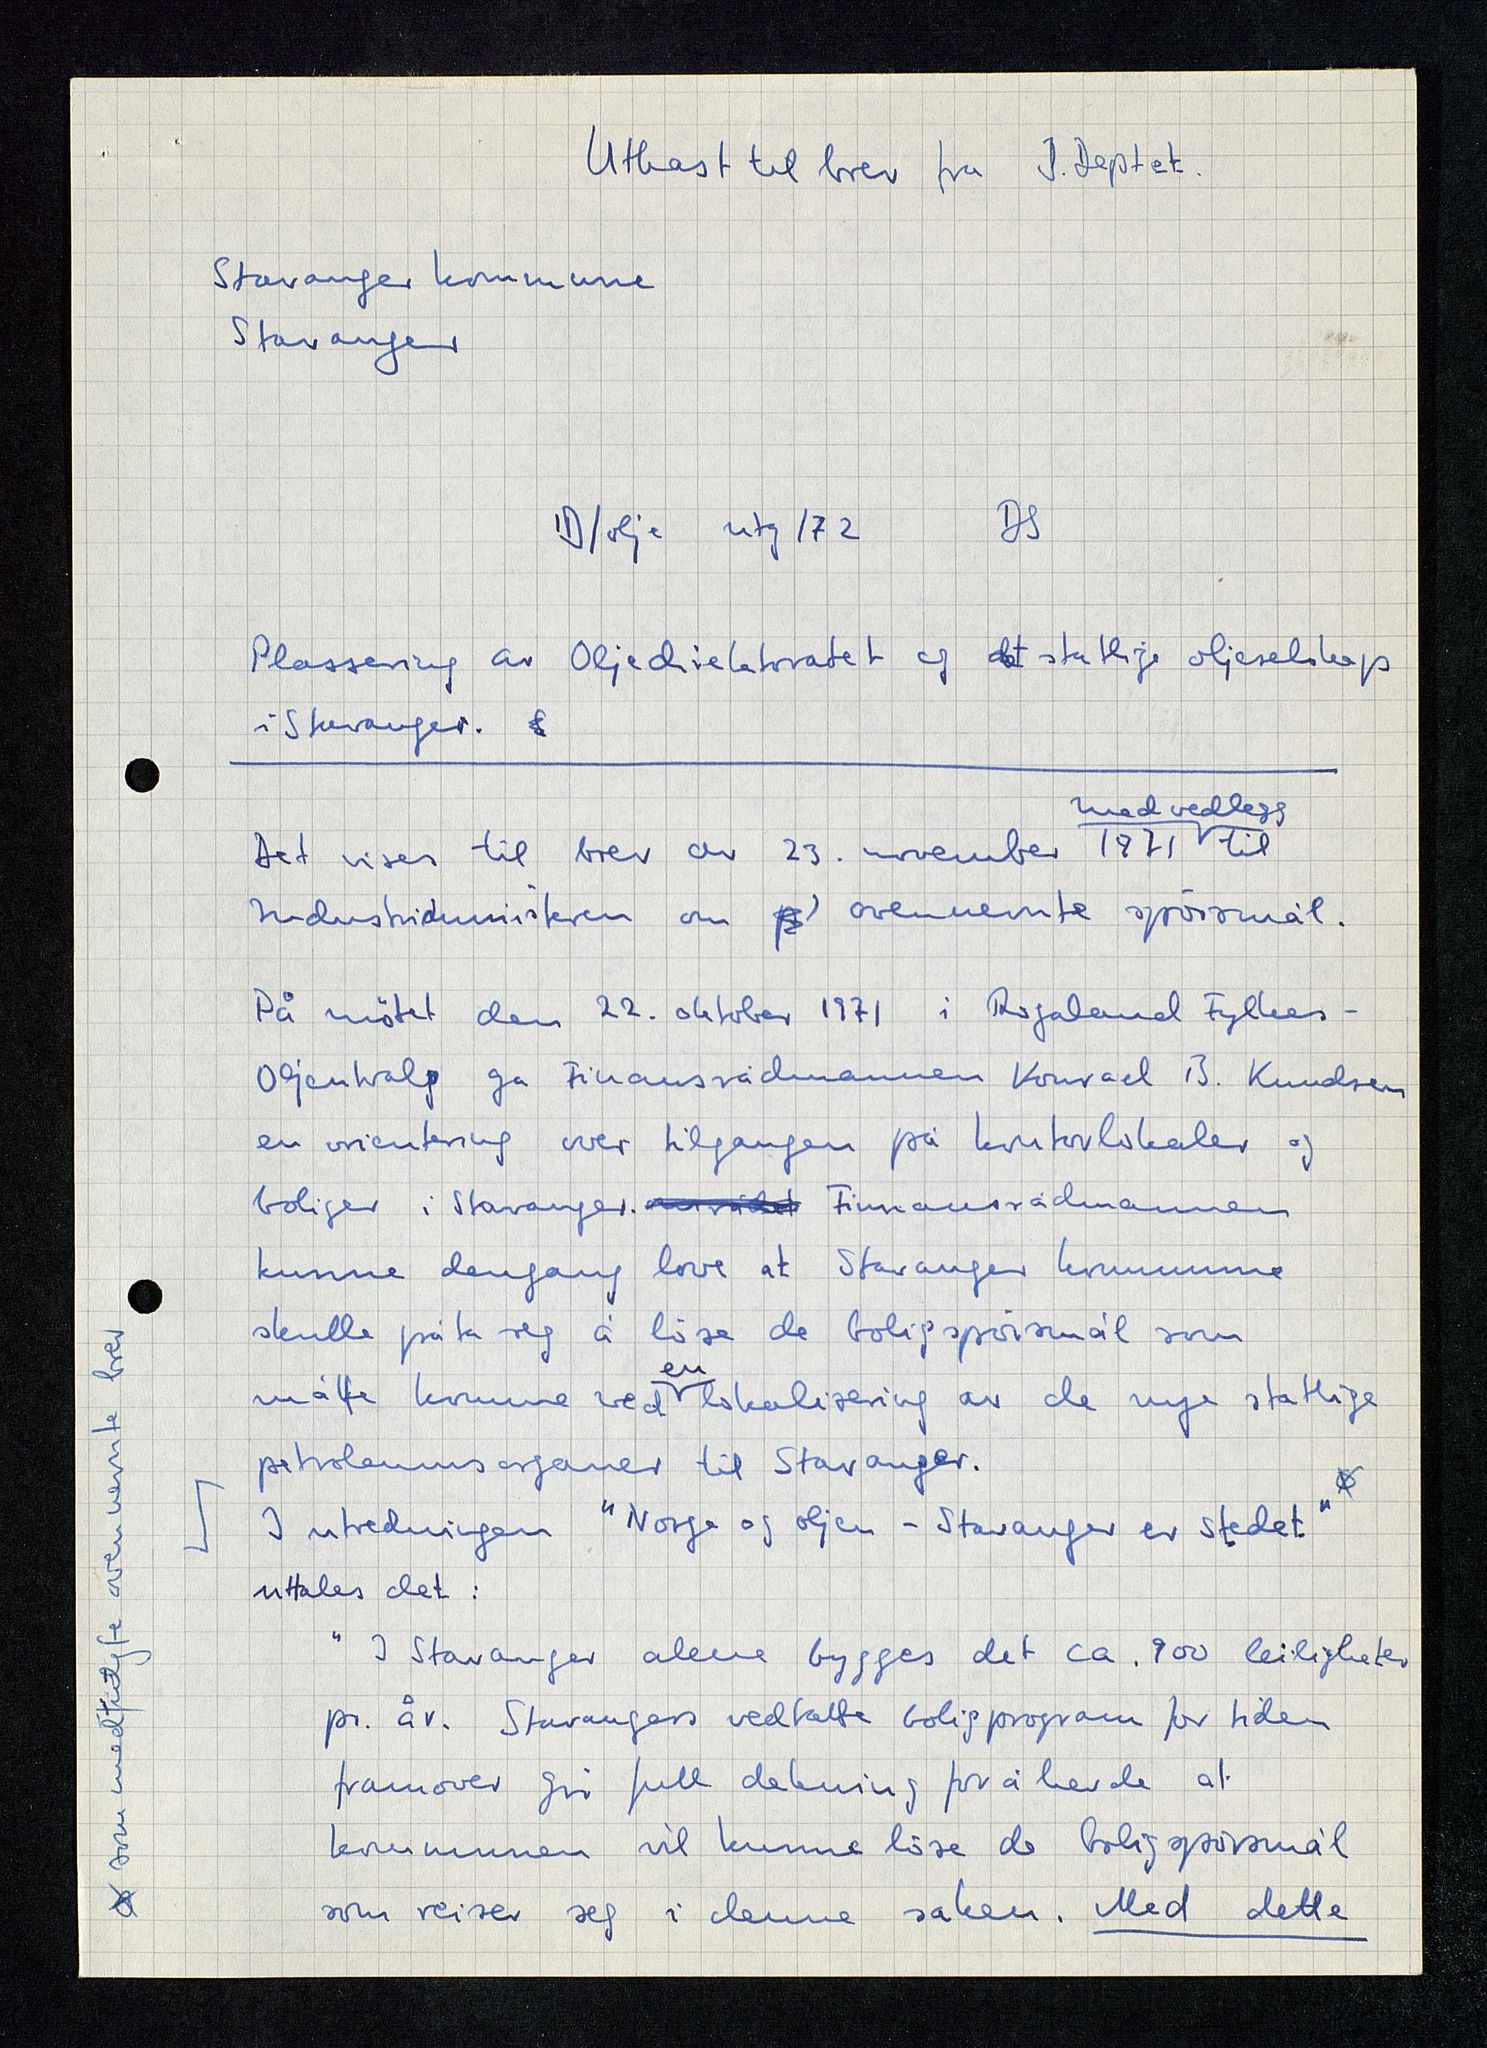 Utkast til brev fra I.Deptet.
Stavanger kommune
Stavanger
ID/olje utg 172 DS
Plassering av Oljedirektoratet og det statlige oljeselskap
i Stavanger.
med vedlegg
Det vises til brev av 23. november 1971 til
Industriministeren om ovennevnte spörsmål.
På mötet den 22. oktober 1971 i Rogaland Fylkes-
Oljeutvalg ga Finansrådmannen Konrad B. Knudsen
en orientering over tilgangen på kontorlokaler og
boliger i Stavanger. Finnansrådmannen
kunne dengang love at Stavanger kommune
skulle påta seg å löse de boligspörsmål som
en
måtte komme ved lokalisering av de nye statlige
petroleumsorganer til Stavanger.
I utredningen "Norge og oljen - Stavanger er stedet"
uttales det:
" I Stavanger alene bygges det ca. 900 leiligheter
pr. år. Stavangers vedtatte boligprogram for tiden
framover gir full dekning for å hevde at
kommunen vil kunne löse de boligspörsmål
som reiser seg i denne saken. Med dette
som medfulgte ovennevnte brev